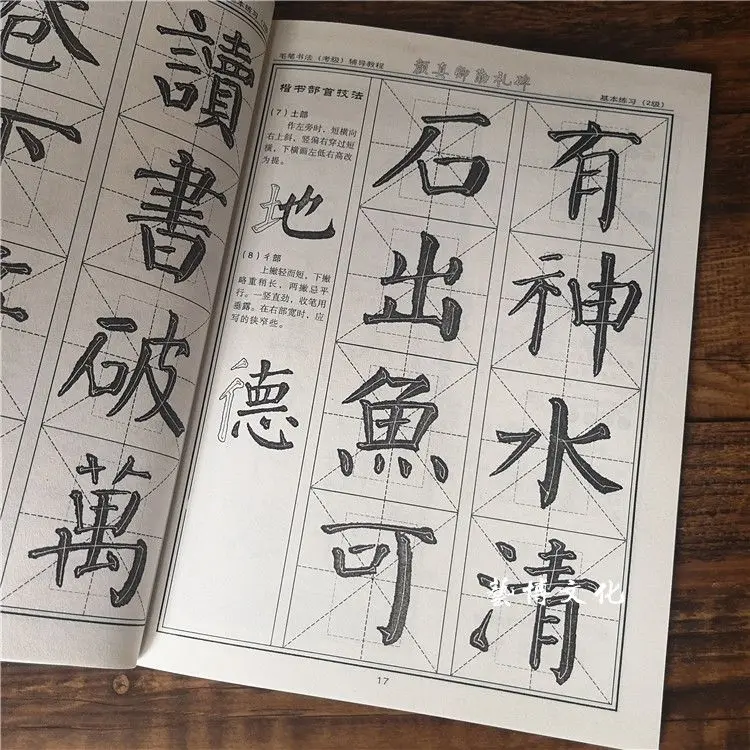 本练习
讀
書
破
萬
卷
下
毛笔书法（考级）辅导教程
颜真卿勤礼碑
基本练习（2级）
楷书部首技法
（7）土部
作左旁时，短横向
右上斜，竖偏右穿过短
横，下横画左低右高改
为提。
地
（8）彳部
上撇轻而短，下撇
略重稍长，两撇忌平
行。一竖直劲，收笔用
垂露。在右部宽时，应
写的狭窄些。
德
有
神
水
清
石
出
魚
可
芸博文化
17